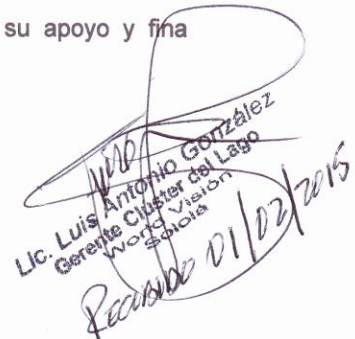 su apoyo y fina
Lic. Luis Antonio González
Gerente Clúster del Lago
World Vision
Sololá
Recibido 01/02/2015